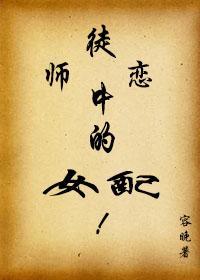 师徒恋
中
的
女配
！
容晚著